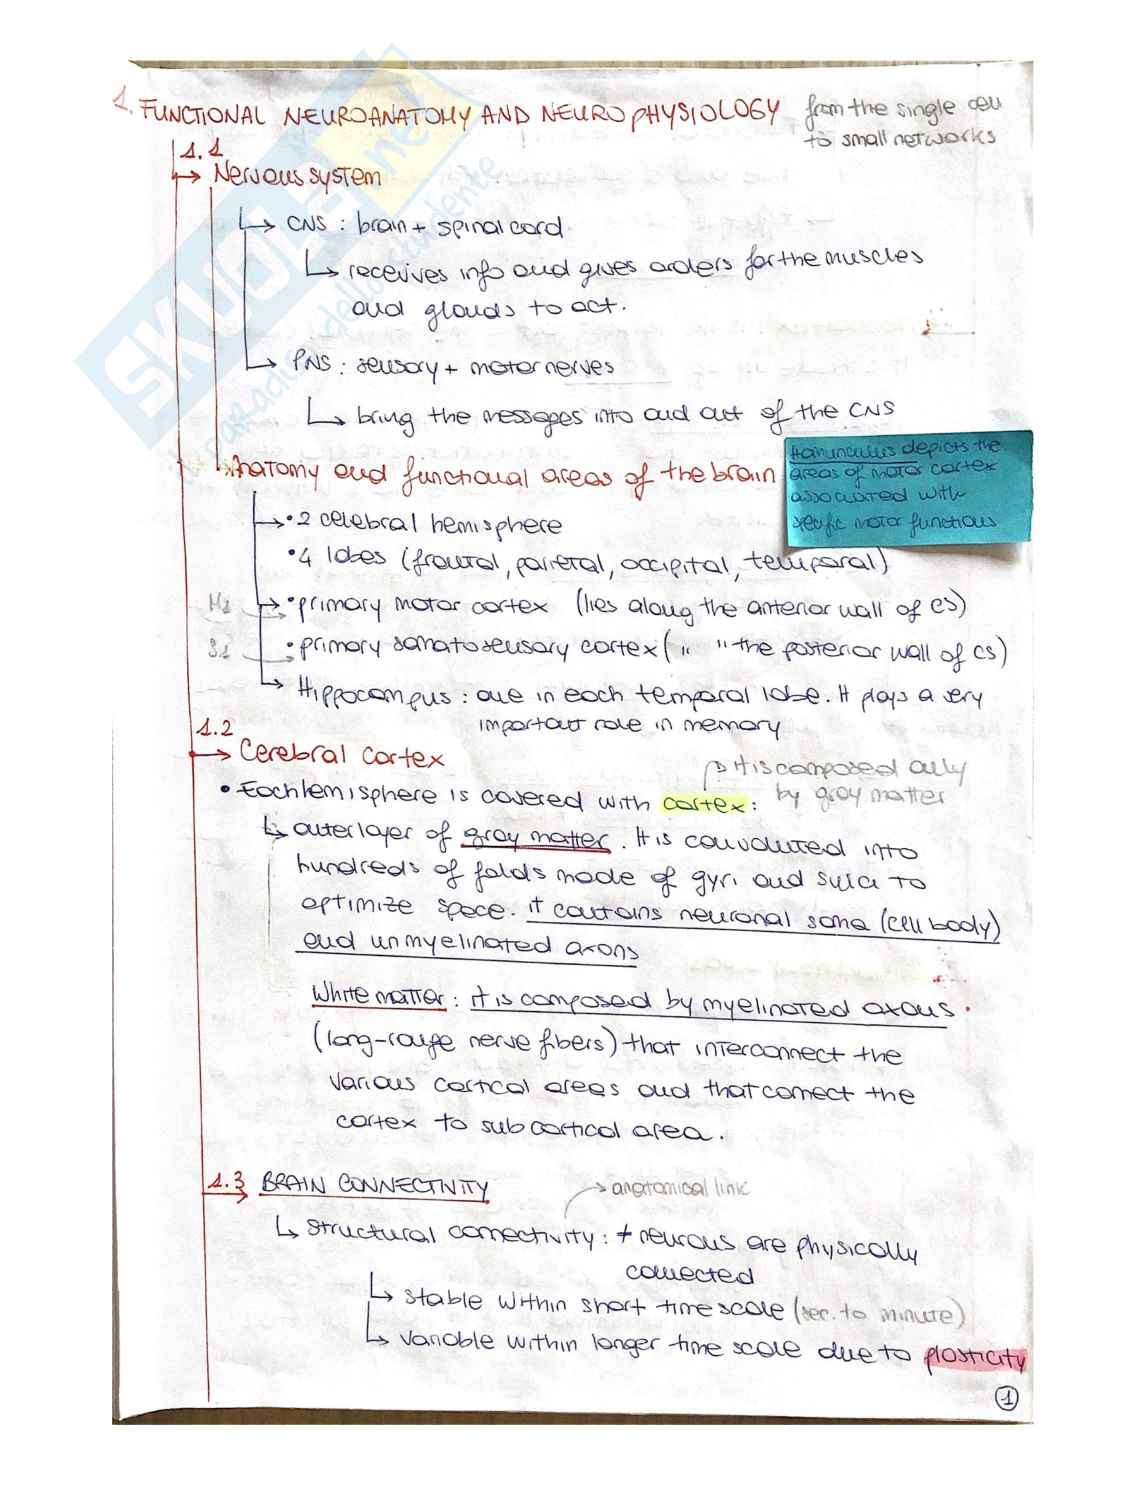 1. FUNCTIONAL NEUROANATOMY AND NEUROPHYSIOLOGY
from the single cell
to small networks
1.1
→ Nervous system
↳ CNS : brain + spinal cord
↳ receives info and gives orders for the muscles
and glands to act.
↳ PNS : sensory + motor nerves
↳ bring the messages into and out of the CNS
Anatomy and functional areas of the brain
Homunculus depicts the
areas of motor cortex
associated with
specific motor functions
→ • 2 cerebral hemisphere
• 4 lobes (frontal, parietal, occipital, temporal)
M1 → • primary motor cortex (lies along the anterior wall of CS)
S1 → • primary somatosensory cortex ( " " the posterior wall of CS)
↳ Hippocampus : one in each temporal lobe. It plays a very
important role in memory
1.2
→ Cerebral cortex
it is composed only
by gray matter
• Each hemisphere is covered with cortex :
↳ outer layer of gray matter. It is convoluted into
hundreds of folds made of gyri and sulci to
optimize space. it contains neuronal soma (cell body)
and unmyelinated axons
White matter : it is composed by myelinated axons.
(long-range nerve fibers) that interconnect the
various cortical areas and that connect the
cortex to subcortical area.
1.3 BRAIN CONNECTIVITY
→ anatomical link
↳ structural connectivity : ≠ neurons are physically
connected
↳ stable within short time scale (sec. to minute)
↳ variable within longer time scale due to plasticity
1
SKUOLA.net
il paradiso dello studente